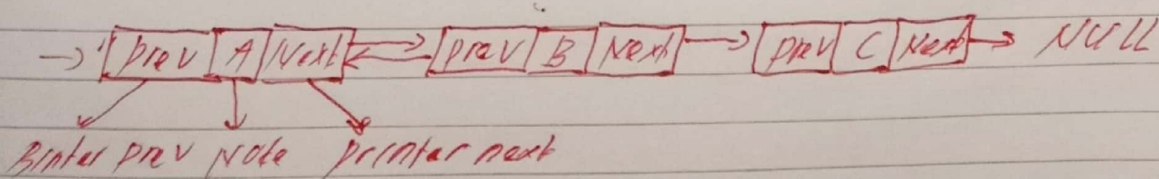 prev A Next prev B Next prev C Next NULL
Binter prev Node printer next